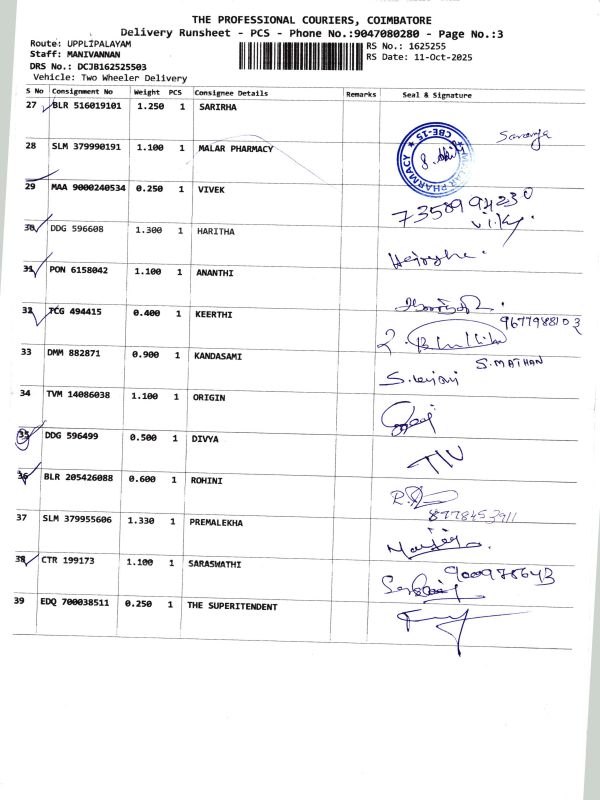 THE PROFESSIONAL COURIERS, COIMBATORE
Delivery Runsheet - PCS - Phone No.:9047080280 - Page No.:3
Route: UPPLIPALAYAM RS No.: 1625255
Staff: MANIVANNAN RS Date: 11-Oct-2025
DRS No.: DCJB162525503
Vehicle: Two Wheeler Delivery
S No Consignment No Weight PCS Consignee Details Remarks Seal & Signature
27 BLR 516019101 1.250 1 SARIRHA
28 SLM 379990191 1.100 1 MALAR PHARMACY
CBE-15
PHARMACY
29 MAA 9000240534 0.250 1 VIVEK
30 DDG 596608 1.300 1 HARITHA
31 PON 6158042 1.100 1 ANANTHI
32 TCG 494415 0.400 1 KEERTHI
33 DMM 882871 0.900 1 KANDASAMI
S.MATHAN
34 TVM 14086038 1.100 1 ORIGIN
35 DDG 596499 0.500 1 DIVYA
36 BLR 205426088 0.600 1 ROHINI
37 SLM 379955606 1.330 1 PREMALEKHA
38 CTR 199173 1.100 1 SARASWATHI
39 EDQ 700038511 0.250 1 THE SUPERITENDENT